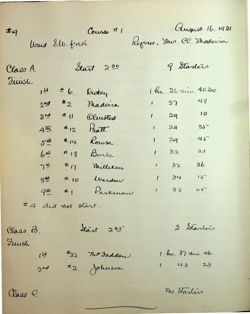 #4 Course #1 August 16, 1921
Wind S.W. fresh Referee, Mrs CC Madeira
Class A. Start 2 30 9 Starters
Finish.
1st #6. 1 hr. 26 min. 40 sec
2nd #2 Madeira 1 27 48
3rd #11 Olmsted 1 29 10
4th #12 Pratt 1 29 35
5th #14 Rouse 1 29 45
6th #18 Burke 1 32 21
7th #17 Milliken 1 32 36
8th #10 Warden 1 34 15
9th #1 Parkman 1 35
#4 did not start.
Class B. Start 2 35 2 Starters
Finish.
1st #22 McFadden 1 hr. 37 min 46
2nd #2 Johnson 1 43 23
Class C No Starters